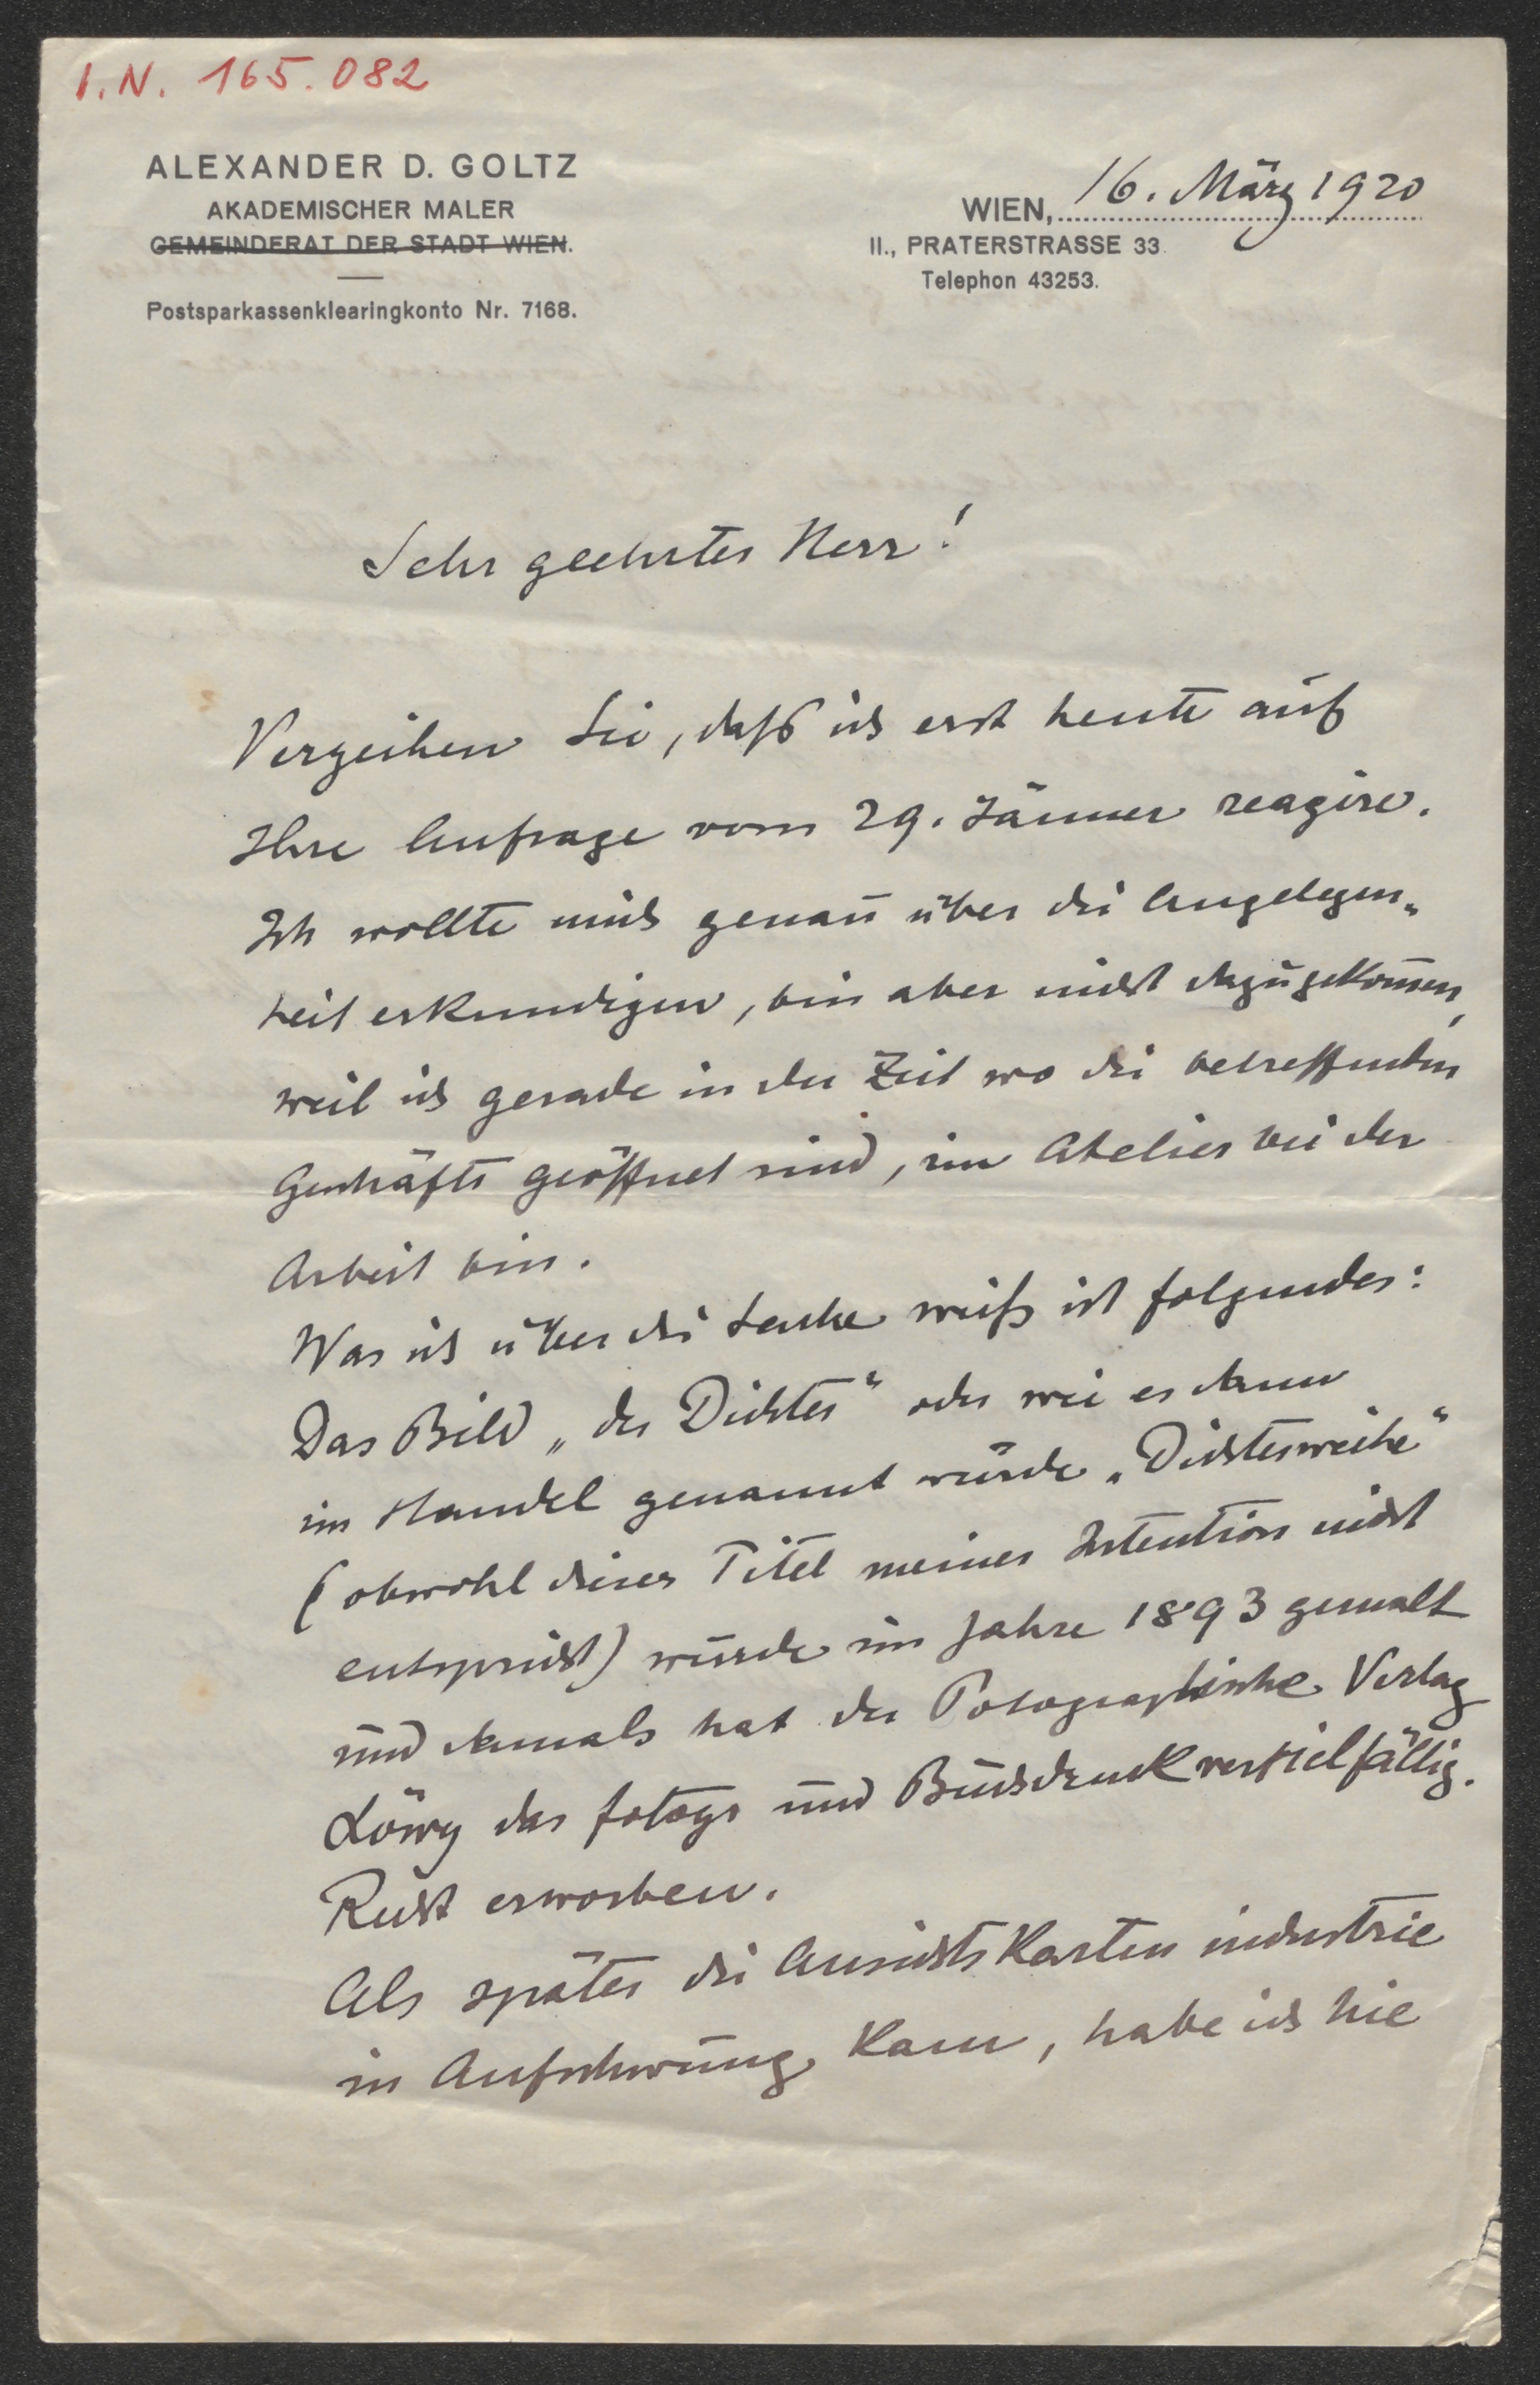 I.N. 165.082
ALEXANDER D. GOLTZ
AKADEMISCHER MALER
GEMEINDERAT DER STADT WIEN.
Postsparkassenklearingkonto Nr. 7168.
WIEN, 16. März 1920
II., PRATERSTRASSE 33
Telephon 43253.
Sehr geehrter Herr!
Verzeihen Sie, daß ich erst heute auf
Ihre Anfrage vom 29. Jänner reagire.
Ich wollte mich genau über die Angelegen„
heit erkundigen, bin aber nicht dazugekom̅en,
weil ich gerade in der Zeit wo die betreffenden
Geschäfte geöffnet sind, im Atelier bei der
Arbeit bin.
Was ich über die Sache weiß ist folgendes:
Das Bild „der Dichter“ oder wie es dann
im Handel genannt wurde „Dichterweihe“
(obwohl dieser Titel meiner Intention nicht
entspricht) wurde im Jahre 1893 gemalt
und damals hat der Potographische Verlag
Löwy das fotogr und Buchdruck vervielfältig.
Recht erworben.
Als später die Ansichtskarten industrie
in Aufschwung kam, habe ich hie